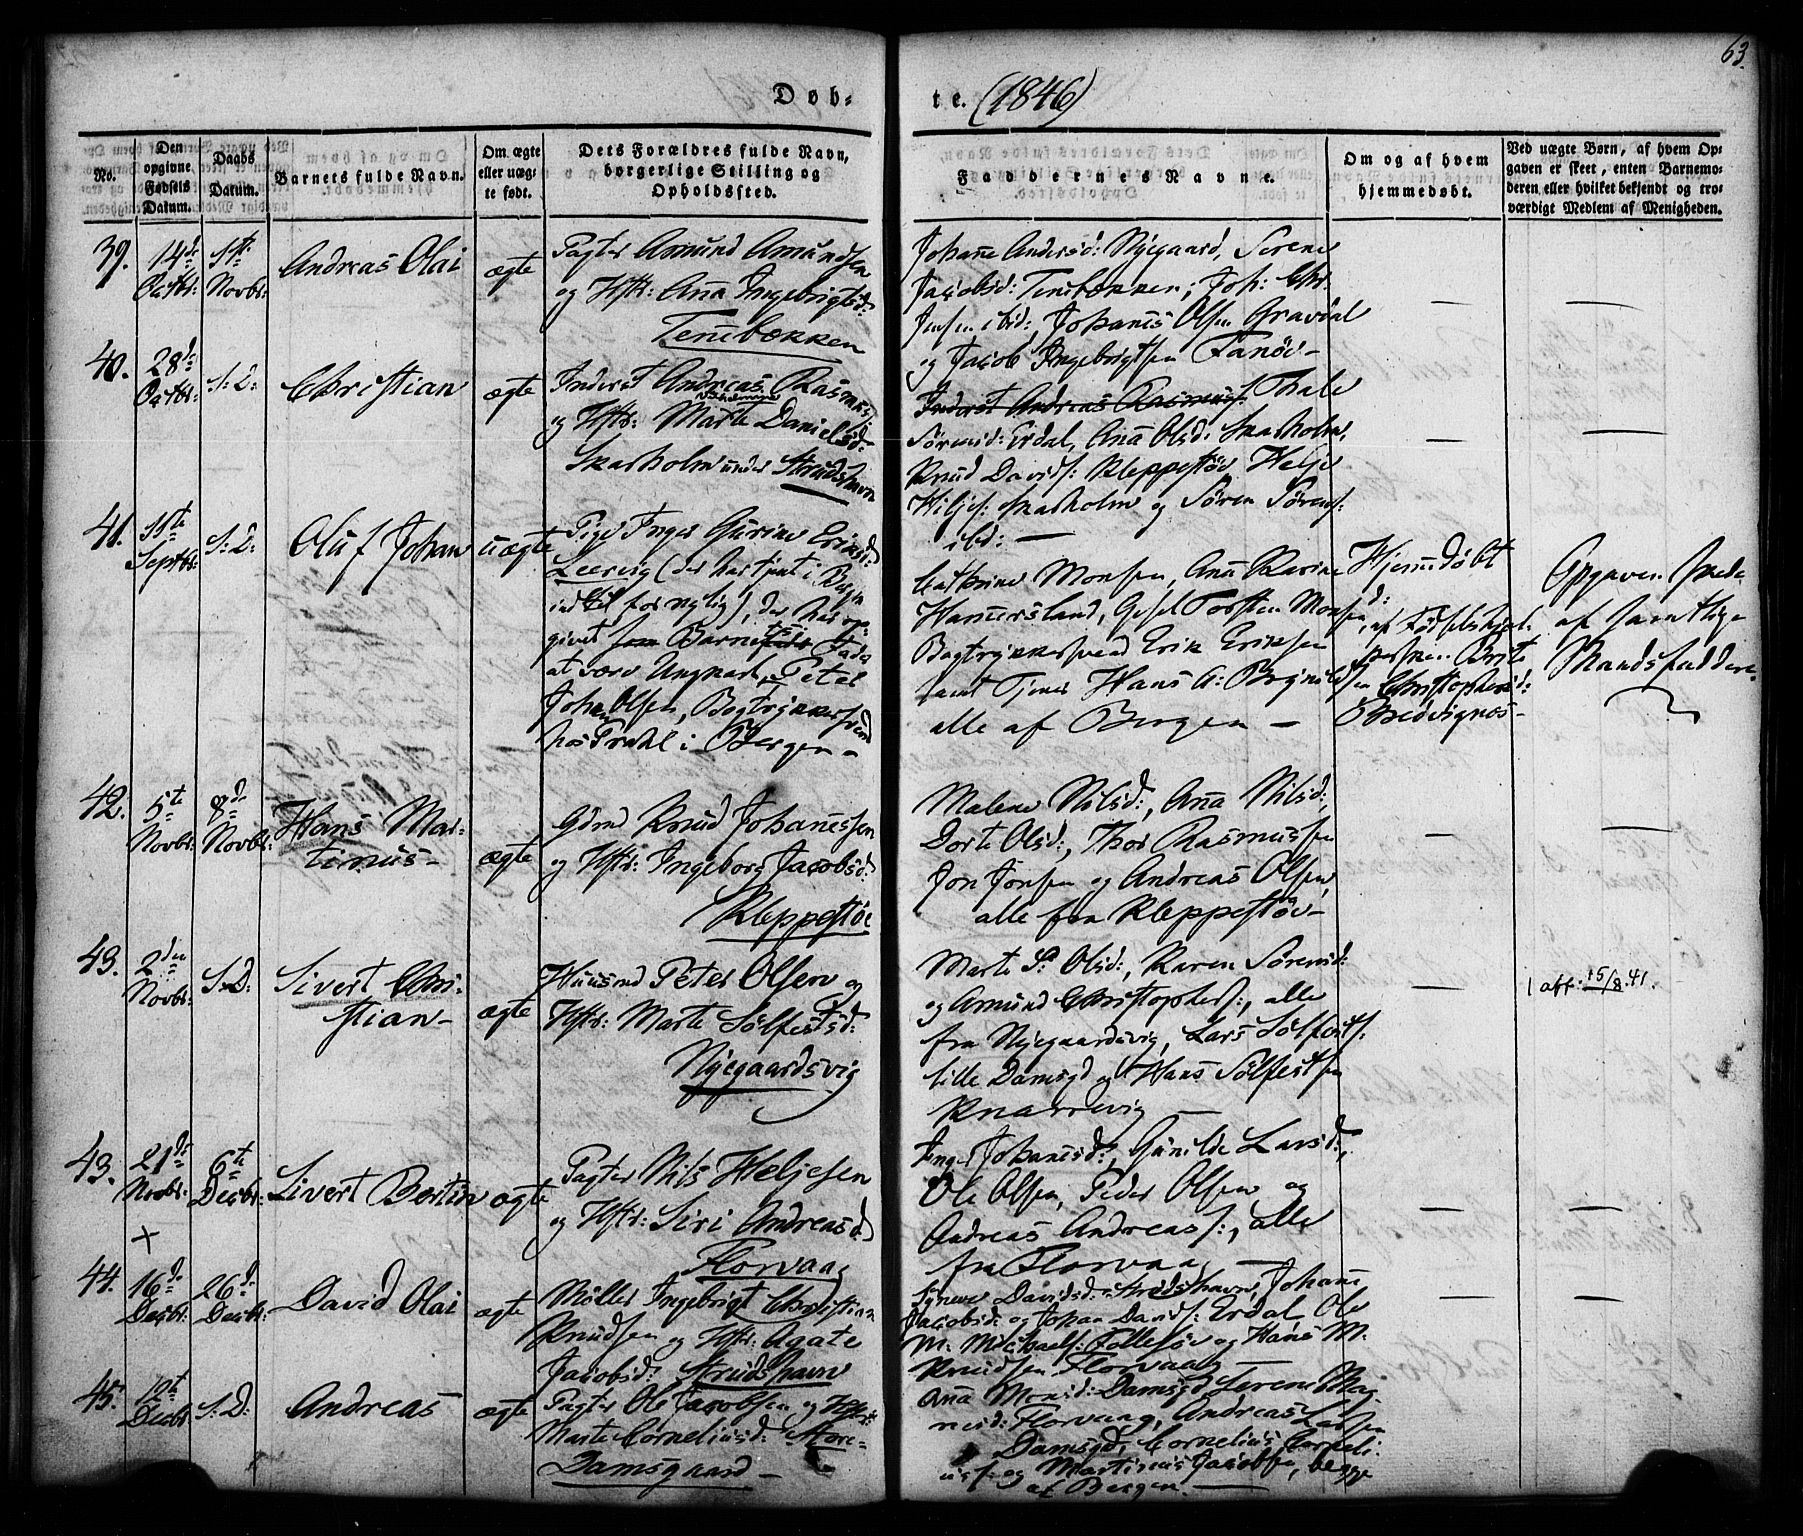 63.
Døb-
te. (1846)
No.
Den
opgivne
Fødsels
Datum.
Daabs
Datum.
Barnets fulde Navn.
Om ægte
eller uæg-
te født.
Dets Forældres fulde Navn,
borgerlige Stilling og
Opholdssted.
Faddernes Navne.
Om og af hvem
hjemmedøbt.
Ved uægte Børn, af hvem Op-
gaven er skeet, enten Barnemo-
deren eller hvilket bekjendt og tro-
værdigt Medlem af Menigheden.
39.
14de
Octbr:
1ste
Novbr:
Andreas Olai
ægte
Pagter Amund Amundsen
og Hstr: Anna Ingebrigtsd:
Tennebækken
Johanne Andersd: Nygaard, Serene
Jacobsd: Tennebækken; Joh: Chr.
Jensen ibid:, Johannes Olsen Gravdal
og Jacob Ingebrigtsen Fanöe-
40.
28de
Octbr:
S: D:
Christian
ægte
Inderst Andreas Rasmus:
og Hstr: Marte Danielsd:
Skarholm under Strudshavn
Inderst Andreas Rasmuss: Thale
Sörensd: Erdal, Anna Olsd: Skarholm,
Knud Davids: Kleppestöe, Helje
Hiljes: Skarholm og Sören Sörens:
ibd: —
41.
11te
Septbr:
S: D:
Oluf Johan
uægte
Pige Inger Gurine Eriksd:
Leervig (der har tjent i Bergen
indtil for nylig), der har op-
givet Barnets Fader
at være Ungkarl, Peter
Johan Olsen, Bogtrykkersvend
hos Prahl i Bergen -
Cathrine Monsen, Ana Karine
Hammersland, Torsten Monsen
Bogtrykkersvend Erik Eriksen
samt Tjener Hans A: Brynildsen
alle af Bergen -
Hjemmedøbt
af Fødselshjel-
persken Brite
Christophersd:
Bredvignes-
Opgaven skede
af samtlige
Mandsfaddere.
42.
5te
Novbr:
8de
Novbr:
Hans Mar-
tinus-
ægte
Gdmd Knud Johannessen
og Hstr: Ingeborg Jacobsd:
Kleppestöe
Malene Nilsd:, Anna Nilsd:,
Dorte Olsd:, Thor Rasmussen
Jon Jonsen og Andreas Olsen,
alle fra Kleppestöe-
43.
2den
Novbr:
S: D:
Sivert Chri-
stian-
ægte
Huusmd Peter Olsen og
Hstr: Marte Sölfestsd:
Nyegaardsvig
Marte Olsd:, Karen Sörensd:
og Amund Christophers:, alle
fra Nyegaardsvig, Lars Sölfests:
lille Damsgd og Hans Sölfestsen
Knarrevig —
1 att: 15/8.41.
43.
21de
Novbr:
+
6te
Decbr:
Sivert Bertin
ægte
Pagter Nils Heljesen
og Hstr: Siri Andreasd:
Florvaag
Inger Johannesd:, Gunilde Larsd:,
Ole Olsen, Peder Olsen og
Andreas Andreas:, alle
fra Florvaag —
44.
16de
Decbr:
26de
Decbr:
David Olai
ægte
Möller Ingebrigt Christian
Knudsen og Hstr: Agate
Jacobsd: Strudshavn
Synneve Davidsd: Strudshavn, Johanne
Jacobsd: og Johan Davids: Erdal, Ole
M: Michaels: Follesöe og Hans M.
Knudsen Florvaag —
45.
12te
Decbr:
S: D:
Andreas
ægte
Pagter Ole Jacobsen og Hstr:
Marte Cornelíusd: Store-
Damsgaard —
Anna Monsd: Damsgd Serene Mag-
nesd: Florvaag, Andreas Larsen
Damsgd, Cornelius Corneli-
uss: og Martinus Jacobsen, begge
af Bergen. —